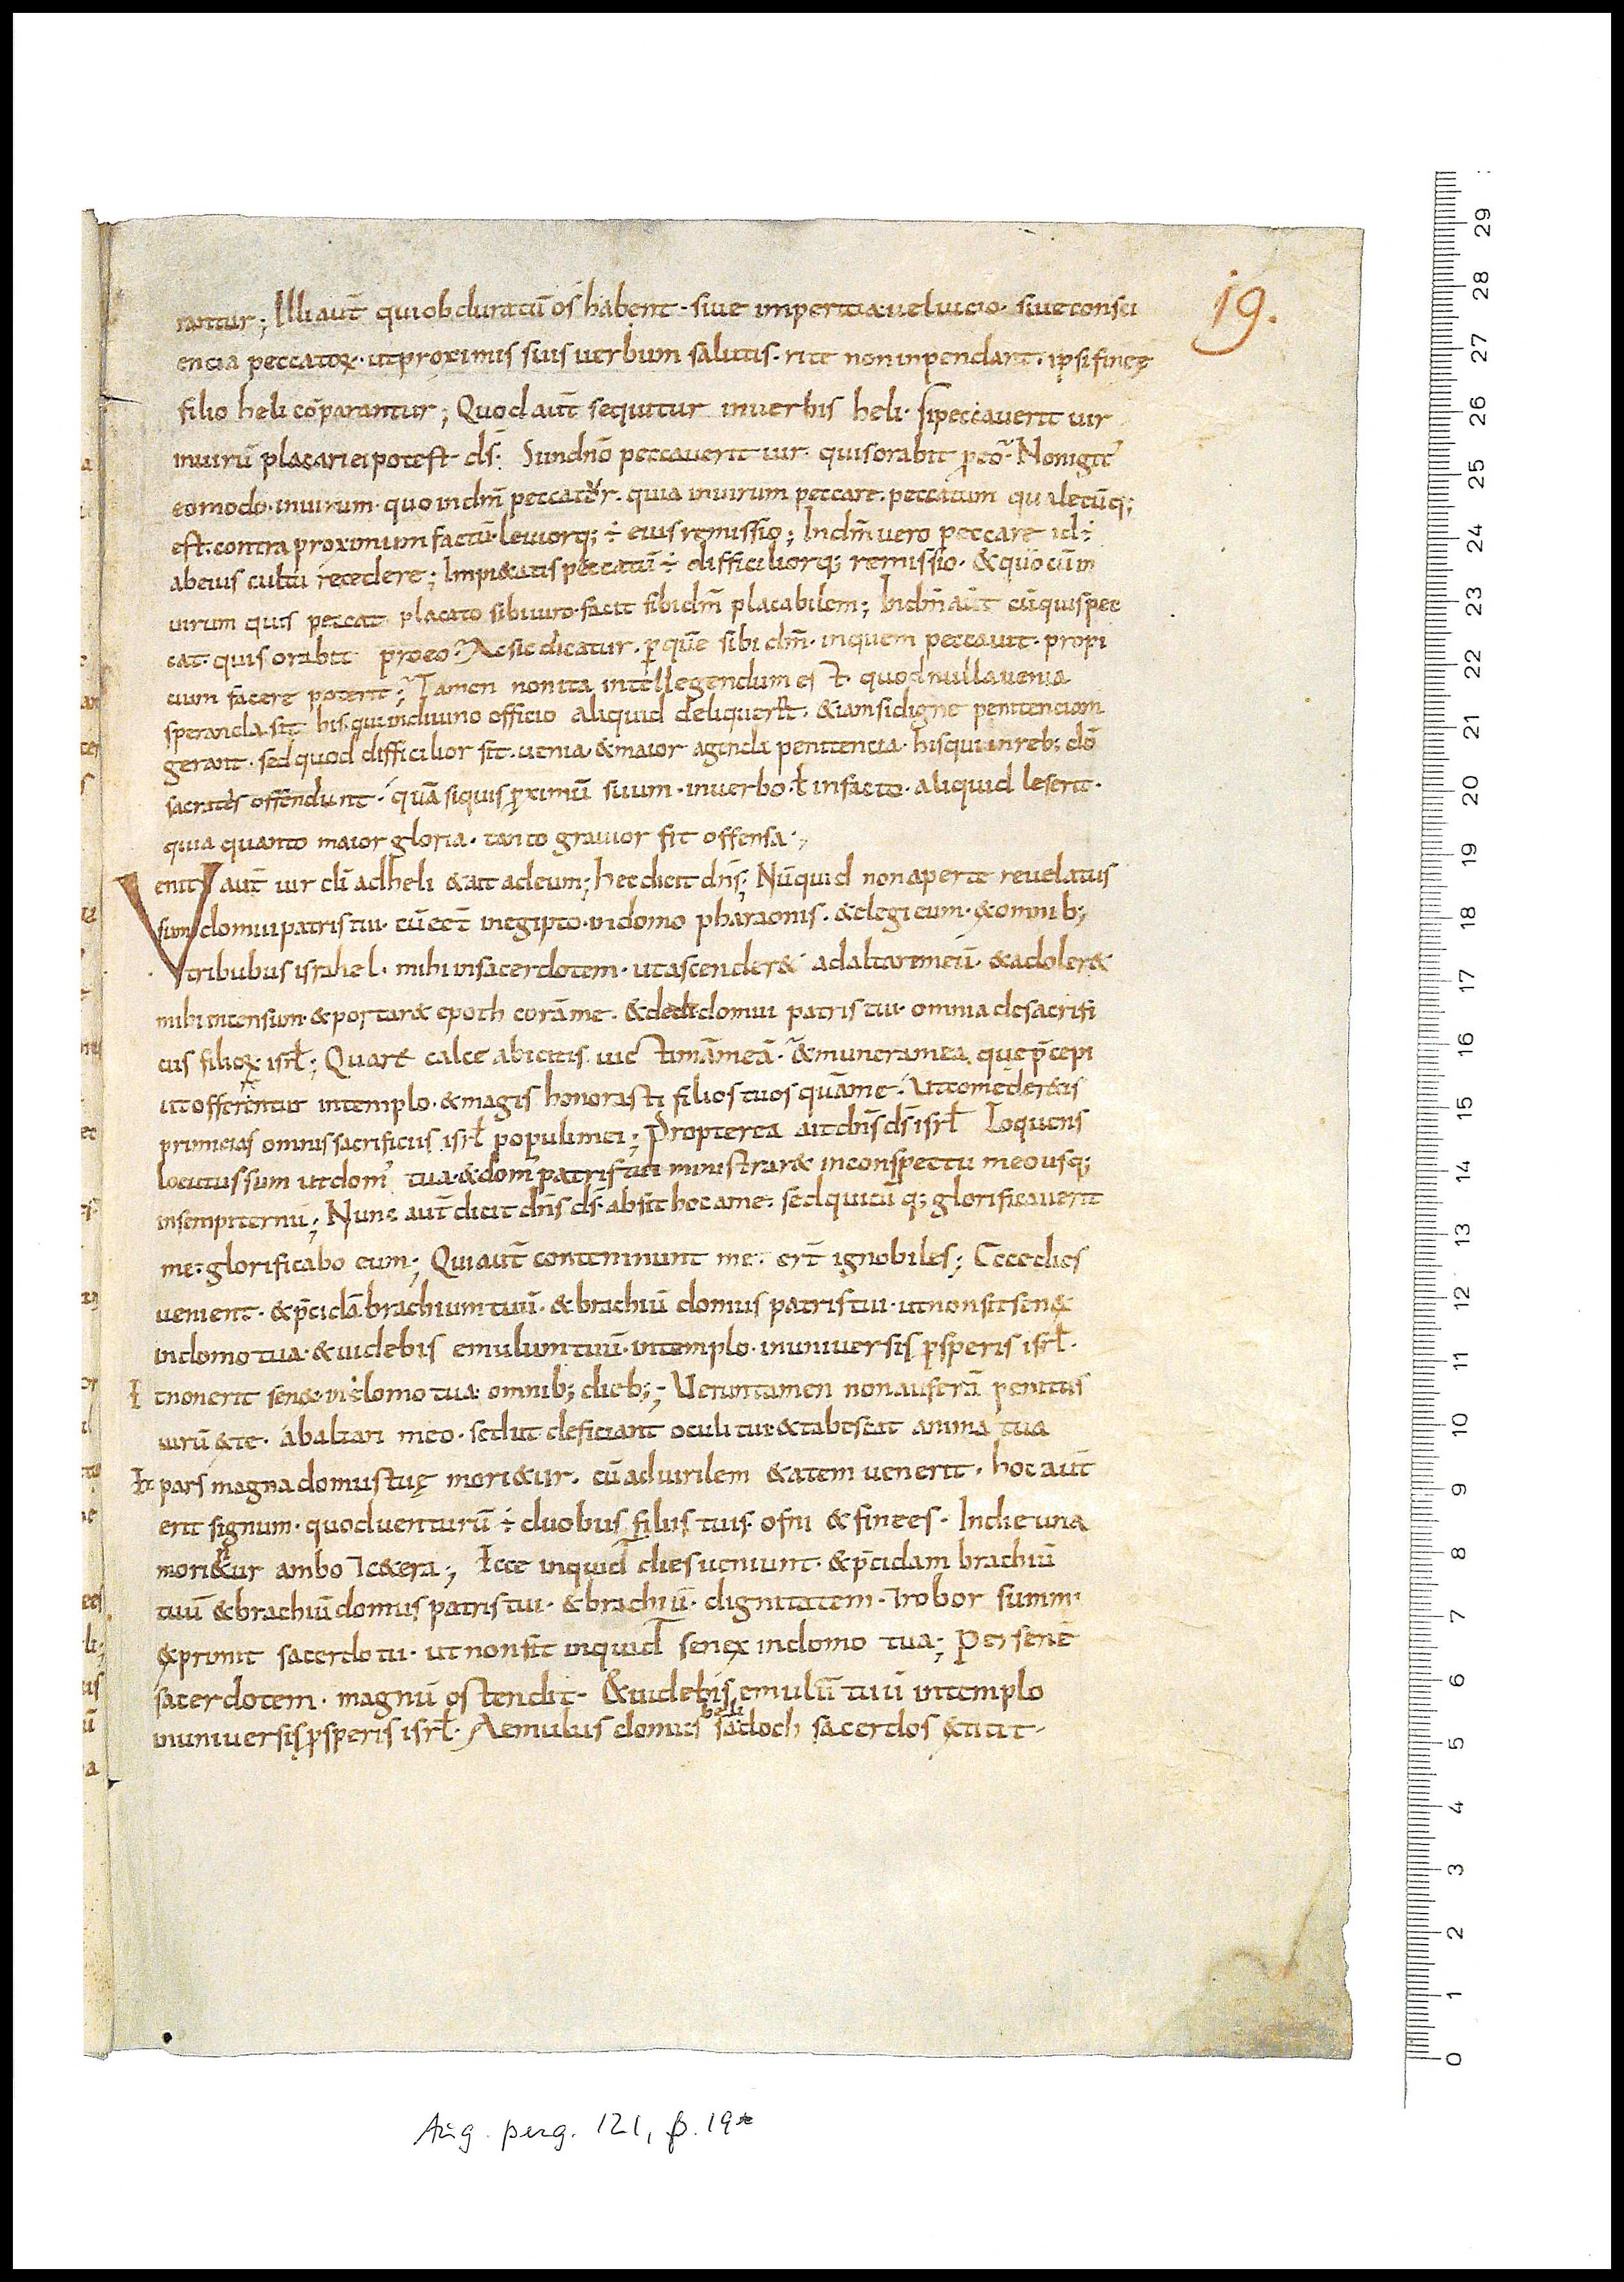 19.
rantur; Illi aut̄ qui obduratū os habent · siue imperitia uel uicio · siue consci
encia peccatoꝝ · ut proximis suis uerbum salutis · rite non inpendant · ipsi fineę
filio heli cōparantur; Quod aut̄ sequitur in uerbis heli · si peccauerit uir
in uirū placari ei potest ds̄. Si in dn̄o peccauerit uir · quis orabit ꝓ eo? Non igit̄
eo modo · in uirum · quo in dm̄ peccatur · quia in uirum peccare · peccatum qualecūq;
est · contra proximum factū · leuiorq; ÷ eius remissio; In dm̄ uero peccare id ÷
ab eius cultu recedere; Impi&atis peccatū ÷ difficiliorq; remissio · & quo cū in
uirum quis peccat placato sibi uiro · facit sibi dm̄ placabilem; In dm̄ aut̄ cū quis pec
cat · quis orabit pro eo? Ac si dicatur · ꝑ quē sibi dm̄ · in quem peccauit · propi
cium facere poterit? Tamen non ita intellegendum est · quod nulla uenia
speranda sit his · qui in diuino officio aliquid deliquer̄t · & iam si digne penitenciam
gerant · sed quod difficilior sit · uenia & maior agenda penitencia · his qui in reb; dō
sacratis offendunt · quā si quis ꝓximū suum · in uerbo · ł in facto · aliquid leserit ·
quia quanto maior gloria · tanto grauior fit offensa ·,
Venit aut̄ uir dī ad heli & ait ad eum; hec dicit dn̄s; Nūquid non aperte reuelatus
sum domui patris tui · cū eēt in egipto · in domo pharaonis · & elegi eum · & omnib;
tribubus israhel · mihi in sacerdotem · ut ascender& ad altare meū · & adoler&
mihi incensum · & portar& epoth corā me · & dedi domui patris tui · omnia de sacrifi
ciis filioꝝ isrł; Quare calce abicitis uictimā meā · & munera mea que p̄cepi
ut offerrentur in templo · & magis honorasti filios tuos quā me · Ut comeder&is
primicias omnis sacrificii isrł populi mei; Propterea ait dn̄s ds̄ isrł Loquens
locutus sum ut dom' tua · & dom' patris tui ministrar& in conspectu meo usq;
in sempiternū; Nunc aut̄ dicit dn̄s ds̄ · absit hoc a me · sed quicūq; glorificauerit
me · glorificabo eum; Qui aut̄ contemnunt me · er̄t ignobiles; Ecce dies
uenient · & p̄cidā brachium tuū · & brachiū domus patris tui · ut non sit senex
in domo tua · & uidebis emulum tuū · in templo · in uniuersis ꝓsperis isrł ·
Et non erit senex in domo tua omnib; dieb;,- Ueruntamen non auferā penitus
uirū ex te · ab altari meo · sed ut deficiant oculi tui · & tabescat anima tua
Et pars magna domus tuę mori&ur · cū ad uirilem &atem uenerit · hoc aut̄
erit signum · quod uenturū ÷ duobus filiis tuis · ofni & finees · In die una
mori&ur ambo ⁊ c&era; Ecce inquid dies ueniunt · & p̄cidam brachiū
tuū & brachiū domus patris tui · & brachiū · dignitatem · ⁊ robor summi
exprimit sacerdotii · ut non sit inquid senex in domo tua; Per senē
sacerdotem · magnū ostendit · & uidebis emulū tuū in templo
in uniuersis ꝓsperis isrł · Aemulus domus heli sadoch sacerdos extitit ·
Aug. perg. 121, p. 19*
0 1 2 3 4 5 6 7 8 9 10 11 12 13 14 15 16 17 18 19 20 21 22 23 24 25 26 27 28 29